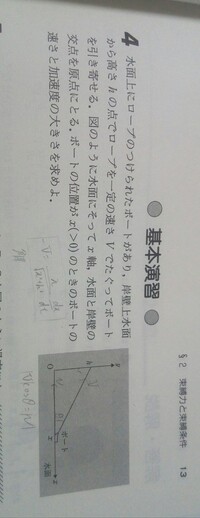 §2 束縛力と束縛条件 13
基本演習
4 水面上にロープのつけられたボートがあり，岸壁上水面
から高さhの点でロープを一定の速さVでたぐってボート
を引き寄せる．図のように水面にそってx軸，水面と岸壁の
交点を原点にとる．ボートの位置がx(>0)のときのボートの
速さと加速度の大きさを求めよ．
y
h
V
O
ボート
x
水面